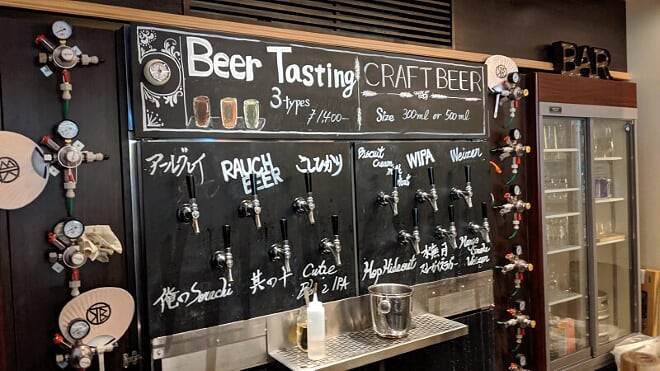 Beer Tasting
3-types
¥1400-
CRAFT BEER
Size 300ml or 500ml
BAR
アールグレイ
RAUCH
BEER
こしひかり
Biscuit
Cream
WIPA
Weizen
俺のSorachi
其の十
Cutie
IPA
Hop Hideout
Weizen